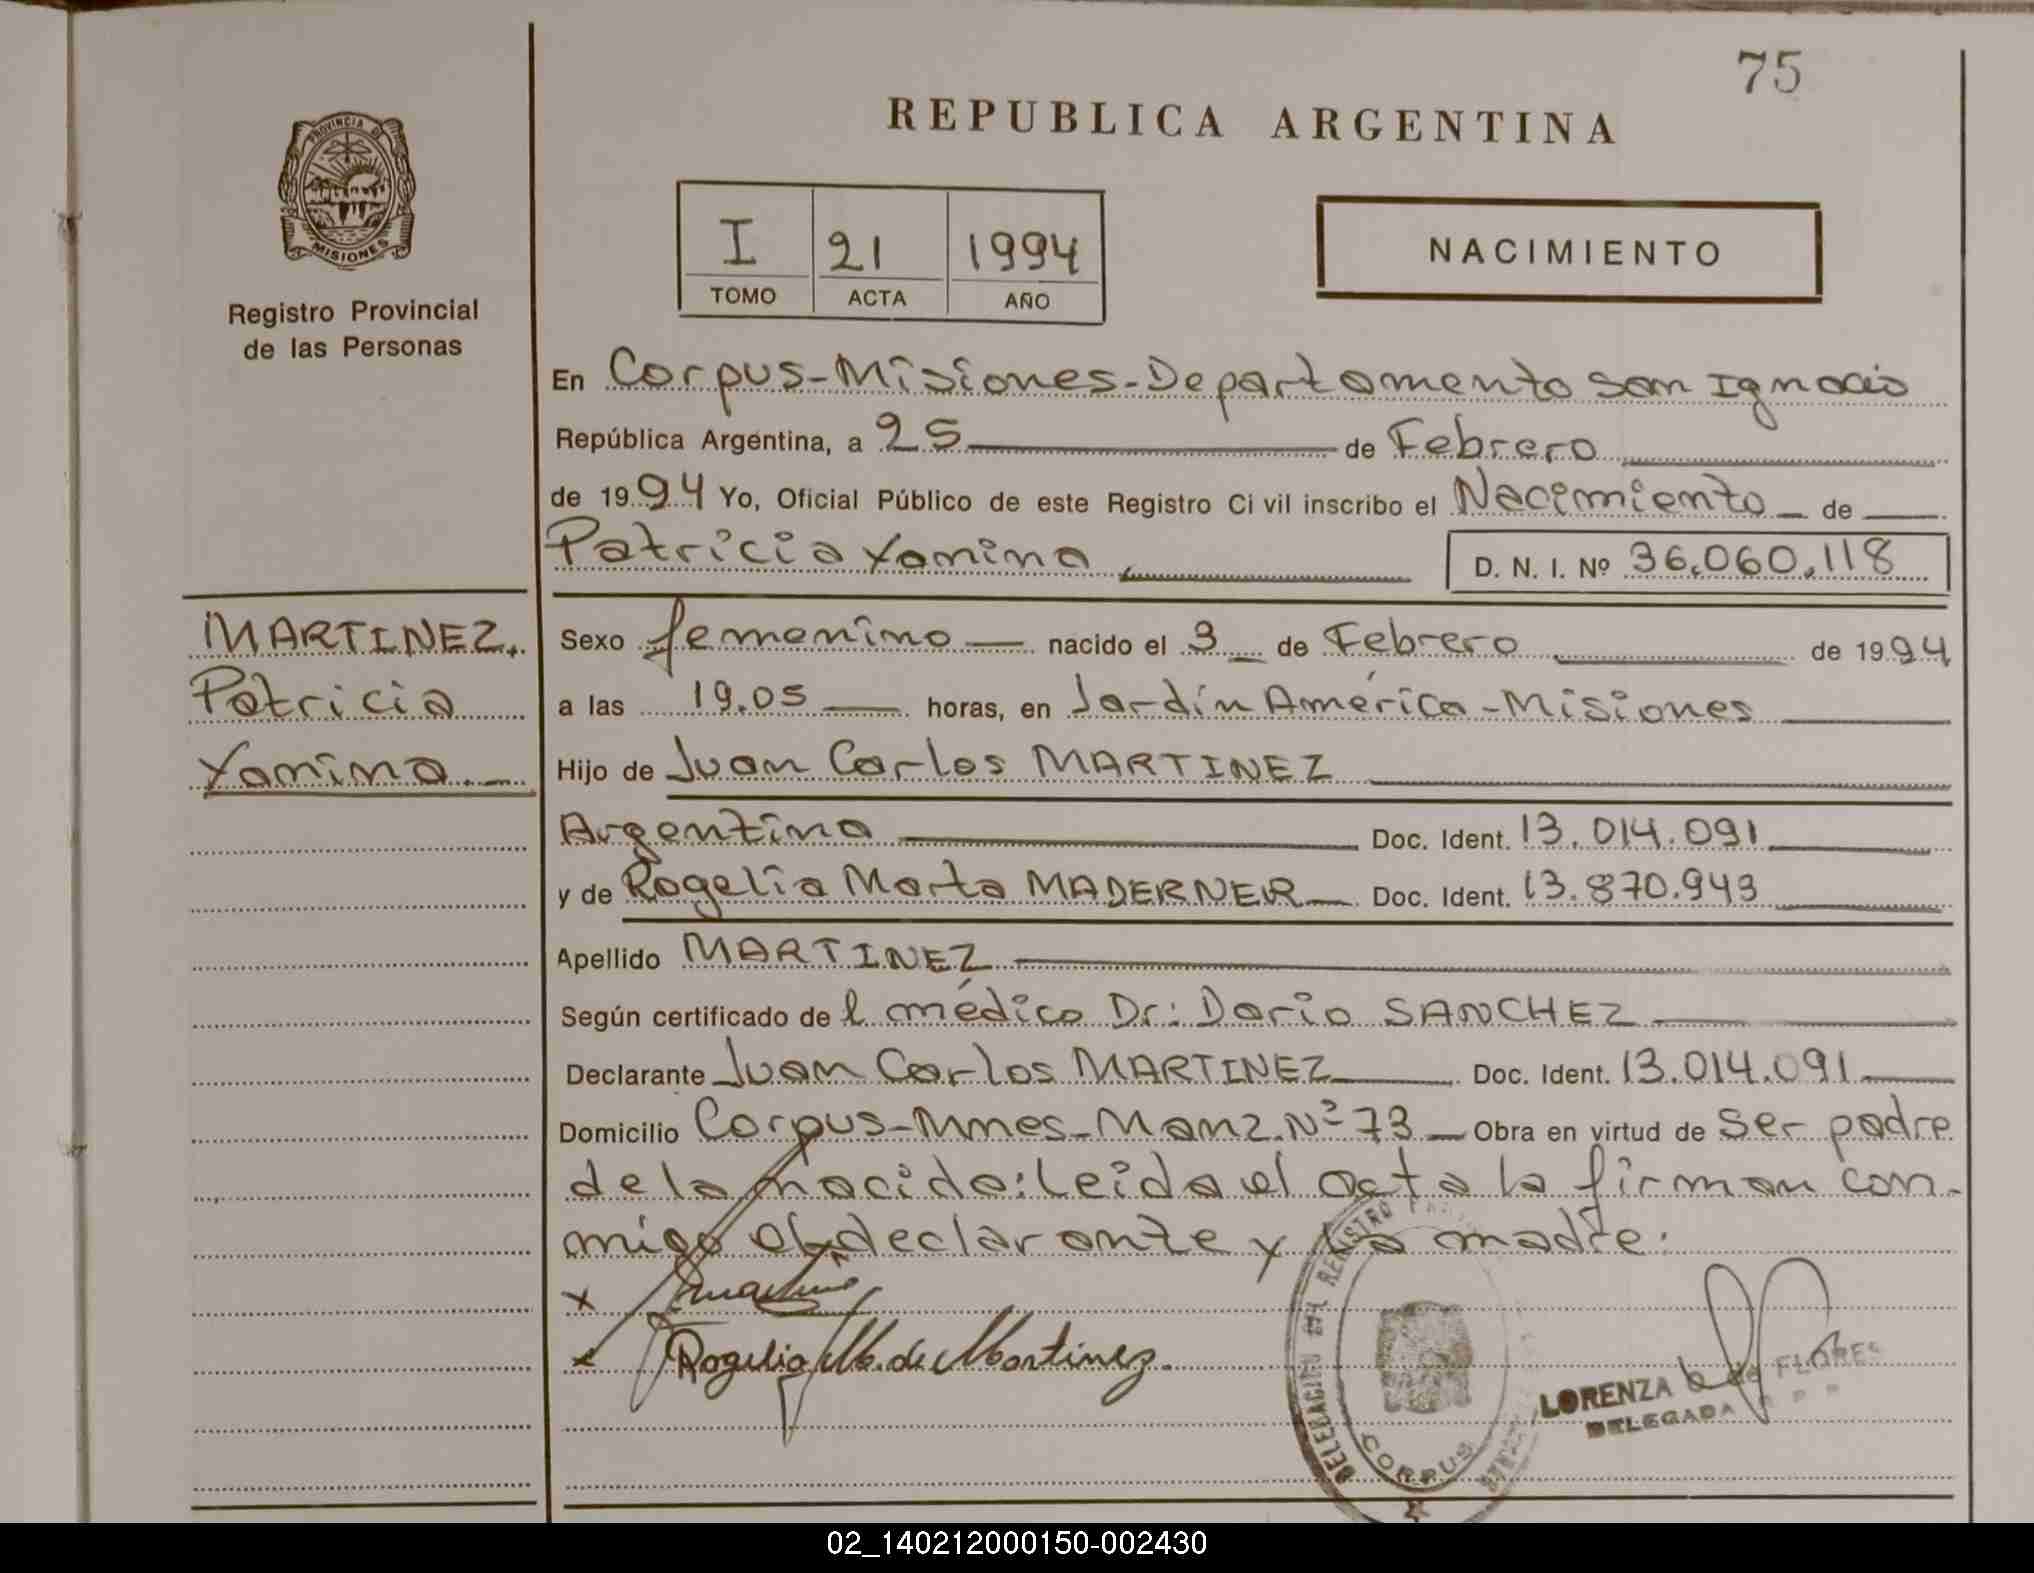 75
REPUBLICA ARGENTINA
PROVINCIA DE
MISIONES
Registro Provincial
de las Personas
I 21 1994
TOMO ACTA AÑO
NACIMIENTO
En Corpus-Misiones-Departamento San Ignacio
República Argentina, a 25 de Febrero
de 1994 Yo, Oficial Público de este Registro Civil inscribo el Nacimiento de
Patricia Yanina D. N. I. Nº 36.060.118
MARTINEZ.
Patricia
Yanina.
Sexo femenino nacido el 3 de Febrero de 1994
a las 19.05 horas, en Jardín América-Misiones
Hijo de Juan Carlos MARTINEZ
Argentino Doc. Ident. 13.014.091
y de Rogelia Marta MADERNER Doc. Ident. 13.870.943
Apellido MARTINEZ
Según certificado del médico Dr: Dario SANCHEZ
Declarante Juan Carlos MARTINEZ Doc. Ident. 13.014.091
Domicilio Corpus-Mnes-Manz.Nº 73 Obra en virtud de ser padre
de la nacida: Leida el acta la firman con-
migo el declarante y la madre.
x
x Rogelia M. de Martinez.
DELEGACION REGISTRO
CORPUS
LORENZA de FLORES
DELEGADA
02_140212000150-002430